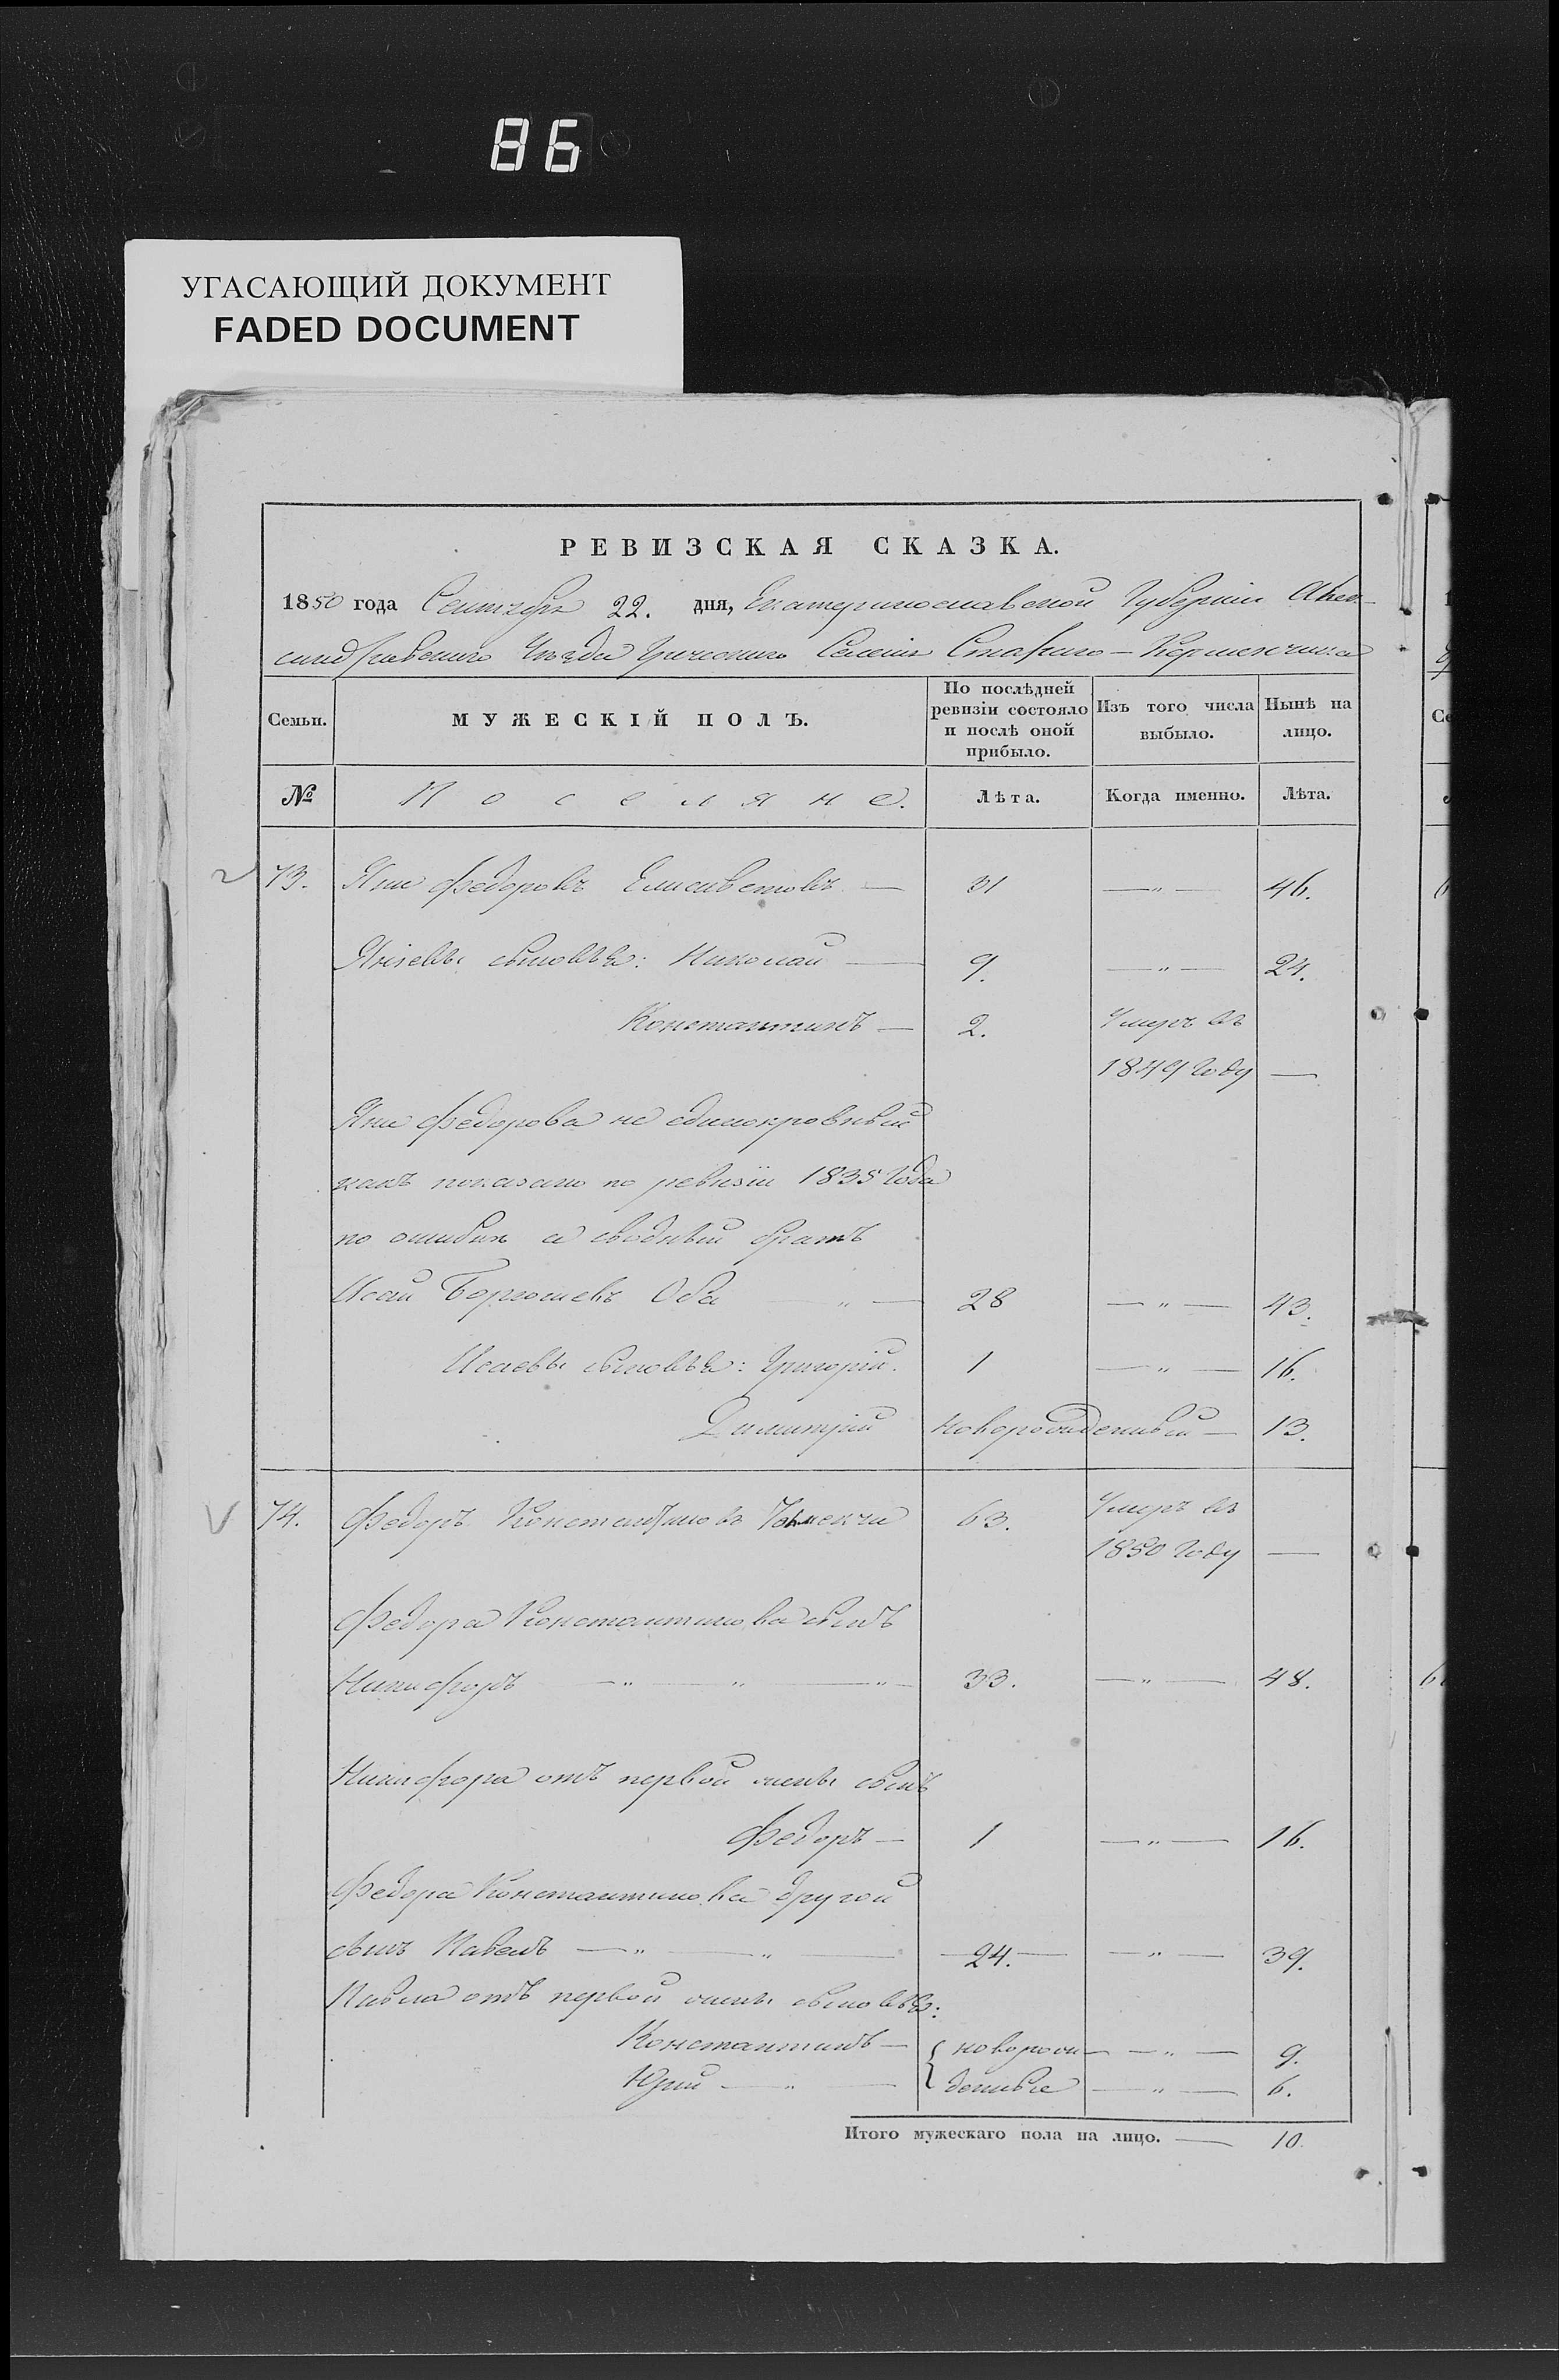 86
УГАСАЮЩИЙ ДОКУМЕНТ
FADED DOCUMENT
РЕВИЗСКАЯ СКАЗКА.
1850 года Сентября 22. дня, Екатеринославской Губернии Алек-
сандровскаго Уѣзда Греческаго Селенія Стараго-Керменчика
Семьи. МУЖЕСКІЙ ПОЛЪ. По послѣдней ревизіи состояло и послѣ оной прибыло. Изъ того числа выбыло. Нынѣ на лицо.
№ Поселяне. Лѣта. Когда именно. Лѣта.
73. Яни Федоровъ Елисаветовъ — 31 —"— 46.
Яніевы сыновья: Николай — 9. —"— 24.
Константинъ — 2. Умеръ въ
1849 году —
Яни Федорова не единокровный
какъ показано по ревизіи 1835 года
по ошибкѣ а сводный братъ
Исай Оба " — 28 —"— 43.
Исаевы сыновья: Григорій. 1 —"— 16.
Димитрій новорожденный — 13.
74. Федоръ Константиновъ 63. Умеръ въ
1850 году —
Федора Константинова сынъ
Никифоръ —"—"—"— 33. —"— 48.
Никифора отъ первой жены сынъ
Федоръ — 1 —"— 16.
Федора Константинова другой
сынъ Павелъ —"—"— 24. —"— 39.
Павла отъ первой жены сыновья:
Константинъ — { новорож- —"— 9.
Юрий —"— денные —"— 6.
Итого мужескаго пола на лицо. — 10.